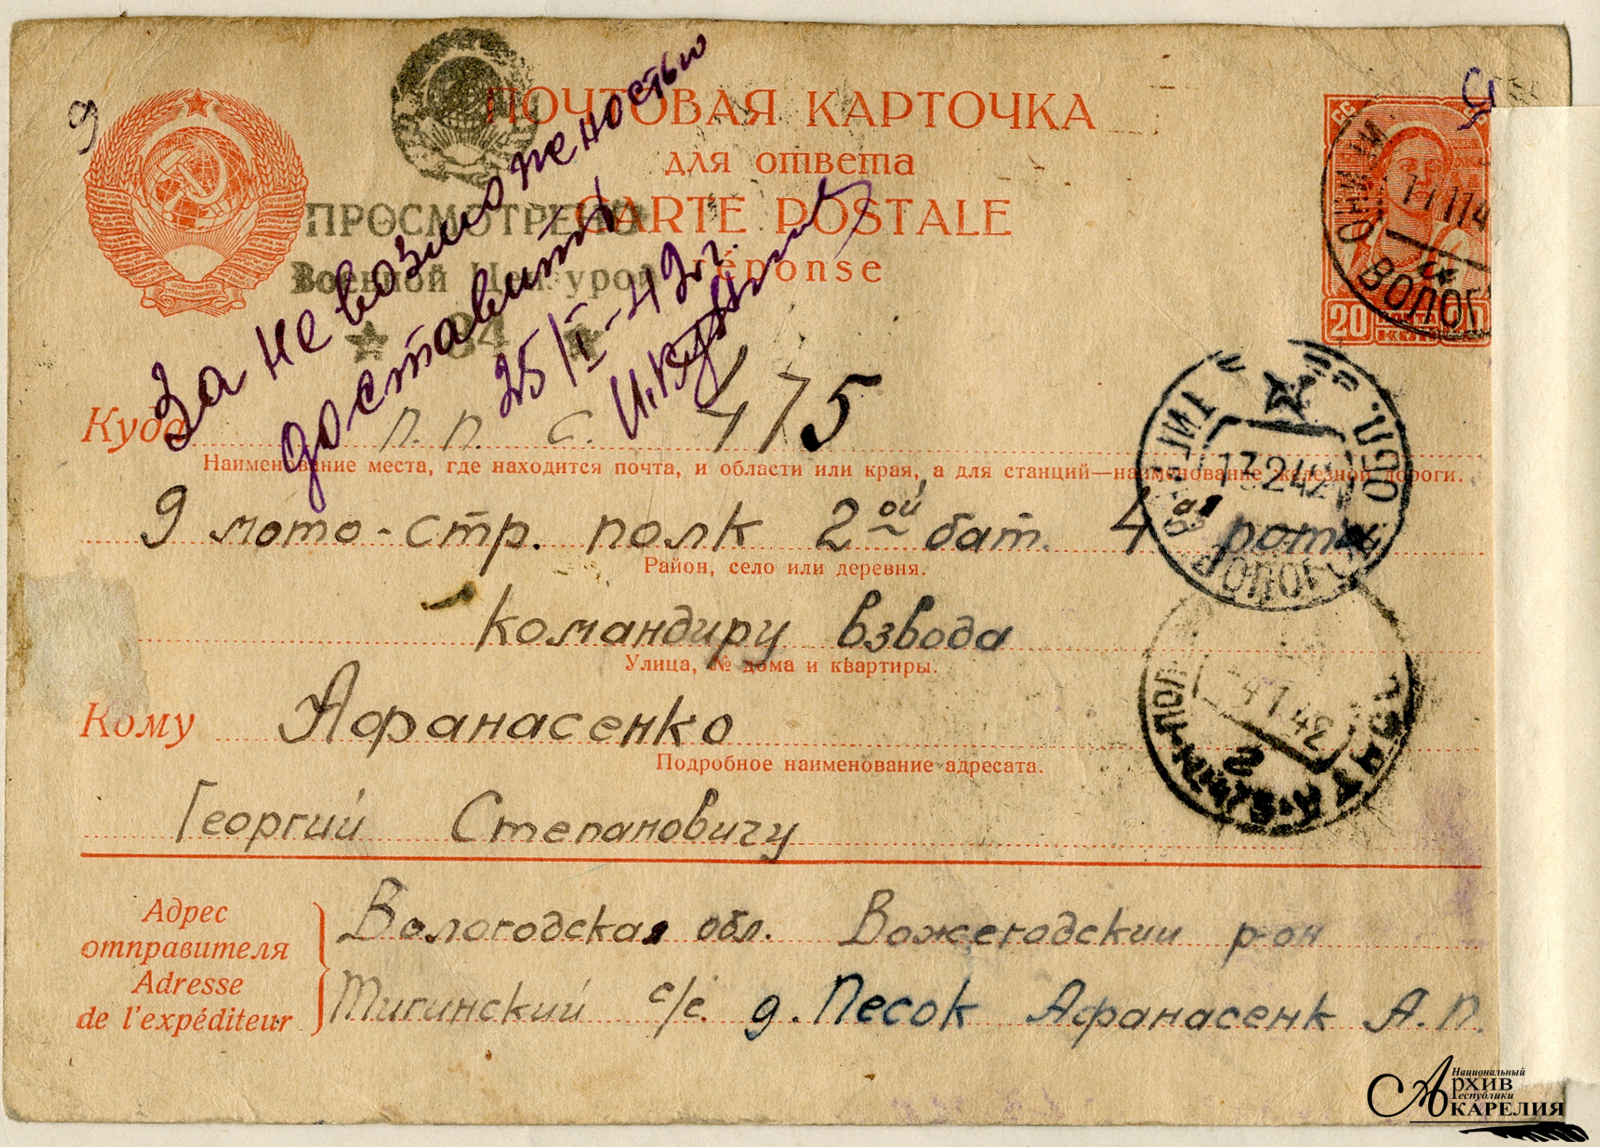 ПОЧТОВАЯ КАРТОЧКА
для ответа
CARTE POSTALE
réponse
ПРОСМОТРЕНО
Военной Цензурой
84
За не возможеностью
доставить
25/I-42г.
20
Куда п. п. с. 475
Наименование места, где находится почта, и области или края, а для станций—наименование железной дороги.
9 мото-стр. полк 2ой бат. 4ая рота
Район, село или деревня.
командиру взвода
Улица, № дома и квартиры.
Кому Афанасенко
Подробное наименование адресата.
Георгий Степановичу
Адрес отправителя
Adresse de l'expéditeur
Вологодская обл. Вожегодский р-он
Тигинский с/с. д. Песок Афанасенк А. П.
Национальный
Архив
Республики
Карелия